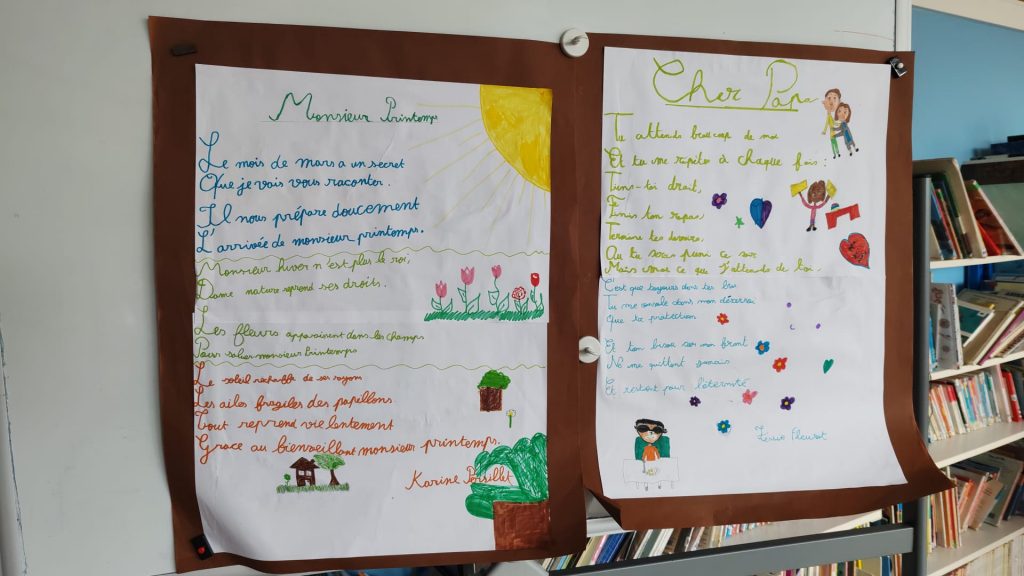 Monsieur Printemps
Le mois de mars a un secret
Que je vais vous raconter.
Il nous prépare doucement
L'arrivée de monsieur printemps.
Monsieur hiver n'est plus le roi,
Dame nature reprend ses droits.
Les fleurs apparaissent dans les champs
Pour saluer monsieur Printemps
Le soleil réchauffe de ses rayons
Les ailes fragiles des papillons
Tout reprend vie lentement
Grace au bienveillant monsieur printemps.
Karine Persillet
Cher Papa
Tu attends beaucoup de moi
Et tu me répètes à chaque fois :
Tiens-toi droit,
Finis ton repas,
Termine tes devoirs,
Ou tu seras puni ce soir
Mais ce que j'attends de toi.
C'est que toujours dans tes bras
Tu me console dans mon désarroi
Que ta protection
Et ton bisou sur mon front
Ne me quittent jamais
Et restent pour l'éternité